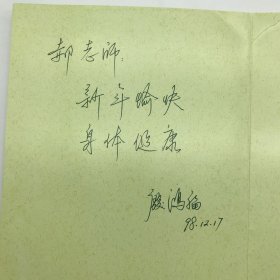 郝老师:
新年愉快
身体健康
殷鸿福
98.12.17